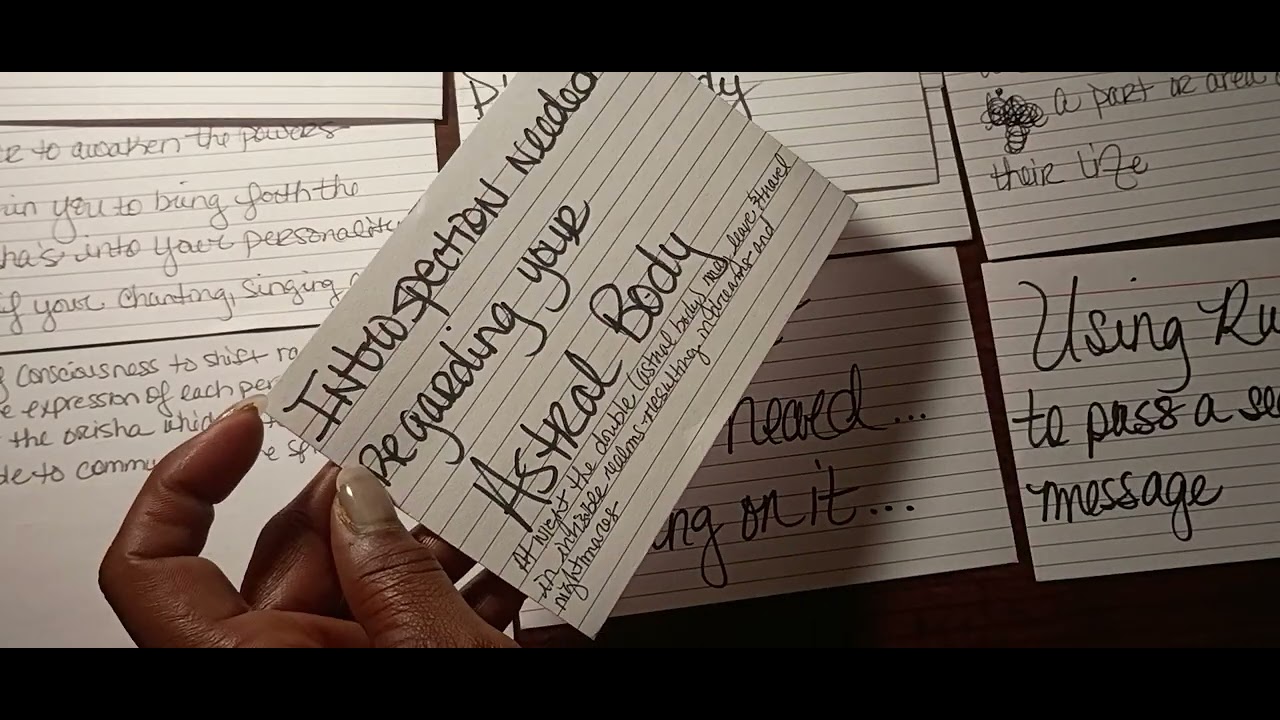 e to awaken the powers
in you to bring forth the
ha's into your personality
if your chanting, singing
consciousness to shift
e expression of each per
the orisha which
de to commu
dy
Introspection Needed
Regarding your
Astral Body
At night the double (astral body) may leave & travel
in invisible realms resulting in dreams and
nightmares
a part or area
their life
heard...
ng on it...
Using Ru
to pass a se
message